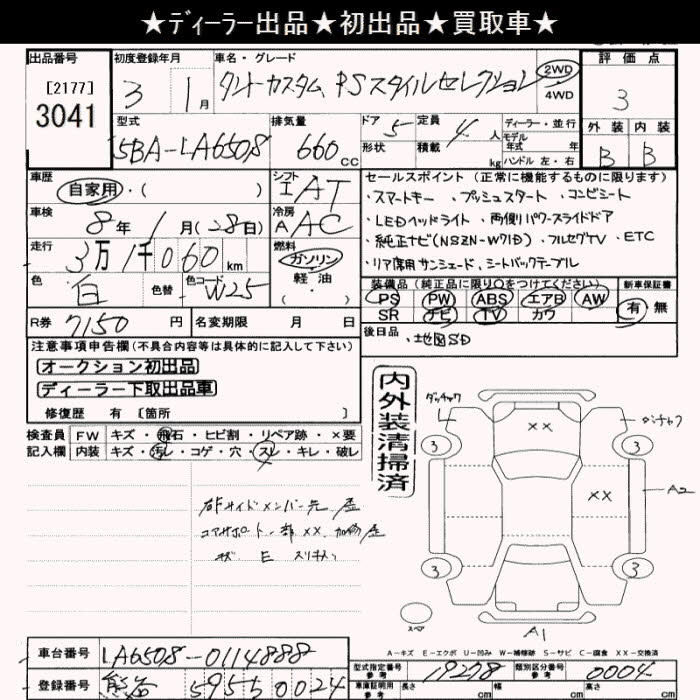 ★ディーラー出品★初出品★買取車★
出品番号
[2177]
3041
初度登録年月
3 1月
車名・グレード
タントカスタム RSスタイルセレクション
2WD
4WD
評価点
3
外装 内装
B B
型式
5BA-LA650S
排気量
660cc
ドア 5
形状
定員 4人
積載 kg
ディーラー・並行
モデル
年式 年
ハンドル 左・右
車歴
自家用・( )
シフト
I AT
車検
8年 1月(28日)
冷房
A AC
走行
3万1千060km
燃料
ガソリン
軽油
( )
色
白
色替
色コード
W25
R券 7150円
名変期限 月 日
セールスポイント(正常に機能するものに限ります)
・スマートキー ・プッシュスタート ・コンビシート
・LEDヘッドライト ・両側パワースライドドア
・純正ナビ(NSZN-W71D) ・フルセグTV ・ETC
・リア席用サンシェード、シートバックテーブル
装備品(純正品に限り○をつけてください)
PS PW ABS エアB AW
SR ナビ TV カワ
新車保証書
有 無
後日品 ・地図SD
注意事項申告欄(不具合内容等は具体的に記入して下さい)
オークション初出品
ディーラー下取出品車
修復歴 有 [箇所 ]
検査員
記入欄
FW キズ・飛石・ヒビ割・リペア跡・×要
内装 キズ・汚レ・コゲ・穴・スレ・キレ・破レ
右Fサイドメンバー先
コアサポート一部XX
内外装清掃済
ダッチャク
ダッチャク
3
3
3
3
XX
XX
A2
スペア
A1
A-キズ E-エクボ U-凹み W-補修跡 S-サビ C-腐食 XX-交換済
車台番号 LA650S-0114888
登録番号 0024
型式指定番号
参考
19278
類別区分番号
参考
0004
車庫証明用
参考
長さ cm 幅 cm 高さ cm